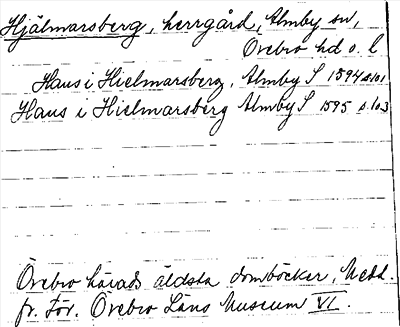 Hjälmarsberg, herrgård, Almby sn,
Örebro hd o. l
Hans i Hielmarsberg, Almby S 1594 s. 101
Hans i Hielmarsberg Almby S 1595 s. 103
Örebro härads äldsta domböcker, Medd.
fr. För. Örebro Läns Museum VI.